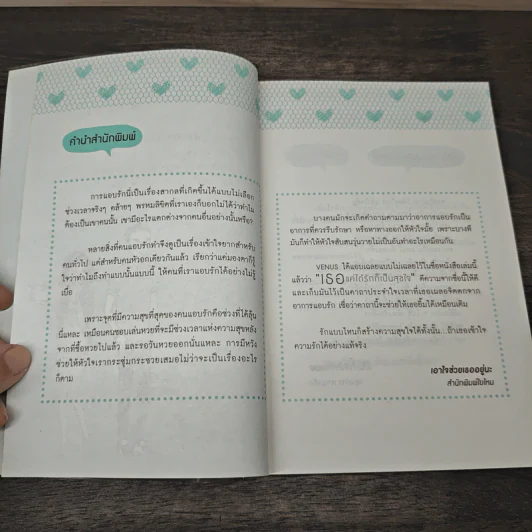 คำนำสำนักพิมพ์
การแอบรักนี่เป็นเรื่องสากลที่เกิดขึ้นได้แบบไม่เลือก
ช่วงเวลาจริงๆ คล้ายๆ พรหมลิขิตที่เราเองก็บอกไม่ได้ว่าทำไม
ต้องเป็นเขาคนนั้น เขามีอะไรแตกต่างจากคนอื่นอย่างนั้นหรือ?
หลายสิ่งที่คนแอบรักทำจึงดูเป็นเรื่องเข้าใจยากสำหรับ
คนทั่วไป แต่สำหรับคนหัวอกเดียวกันแล้ว เรียกว่าแค่มองตาก็รู้
ใจว่าทำไมถึงทำแบบนั้นแบบนี้ ให้คนที่เราแอบรักได้อย่างไม่รู้
เบื่อ
เพราะจุดที่มีความสุขที่สุดของคนแอบรักคือช่วงที่ได้ลุ้น
นี่แหละ เหมือนคนชอบเล่นหวยที่จะมีช่วงเวลาแห่งความสุขหลัง
จากที่ซื้อหวยไปแล้ว และรอวันหวยออกนั่นแหละ การมีหวัง
ช่วยให้หัวใจเรากระชุ่มกระชวยเสมอไม่ว่าจะเป็นเรื่องอะไร
ก็ตาม
บางคนมักจะเกิดคำถามตามมาว่าอาการแอบรักเป็น
อาการที่ควรรีบรักษา หรือหาทางออกให้หัวใจมั้ย เพราะบางที
มันก็ทำให้หัวใจสับสนวุ่นวายไม่เป็นอันทำอะไรเหมือนกัน
VENUS ได้แอบเฉลยแบบไม่เฉลยไว้ในชื่อหนังสือเล่มนี้
แล้วว่า "เธอแค่ได้รักก็เป็นสุขใจ" ตีความจากชื่อนี้ให้ดี
และเก็บมันไว้เป็นคาถาประจำใจเวลาที่เธอเผลอจิตตกจาก
อาการแอบรัก เชื่อว่าคาถานี้จะช่วยให้เธอยิ้มได้เหมือนเดิม
รักแบบไหนก็สร้างความสุขใจได้ทั้งนั้น ถ้าเธอเข้าใจ
ความรักได้อย่างแท้จริง
เอาใจช่วยเธออยู่นะ
สำนักพิมพ์ใยไหม